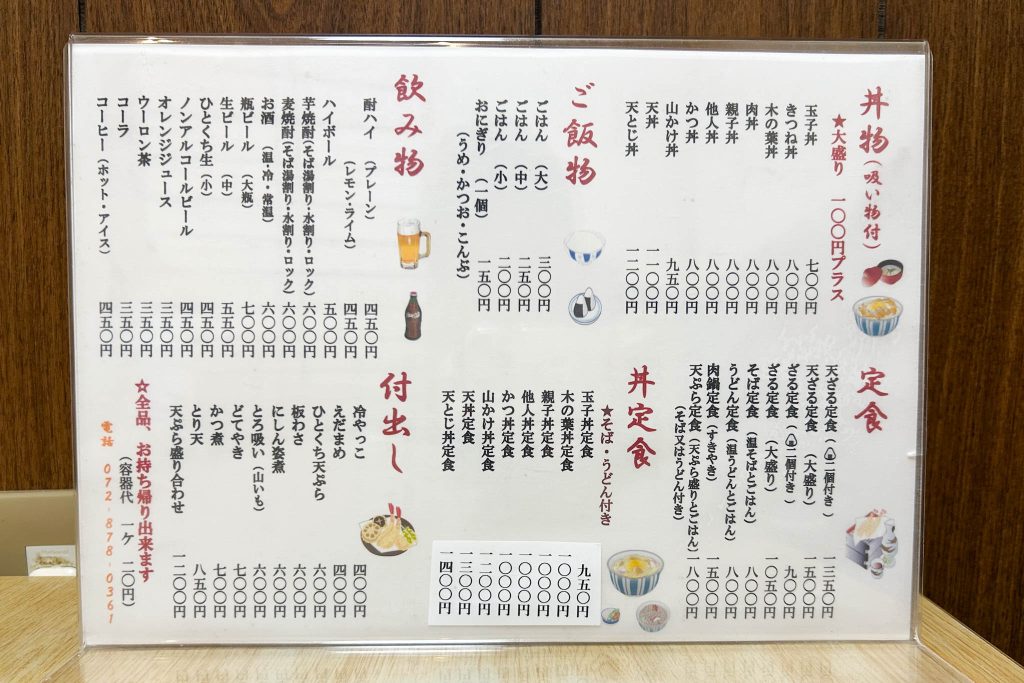 丼物（吸い物付）
★大盛り 一〇〇円プラス
玉子丼 七〇〇円
きつね丼 八〇〇円
木の葉丼 八〇〇円
肉丼 八〇〇円
親子丼 八〇〇円
他人丼 八〇〇円
かつ丼 八〇〇円
山かけ丼 九五〇円
天丼 一一〇〇円
天とじ丼 一二〇〇円
ご飯物
ごはん（大） 三〇〇円
ごはん（中） 二五〇円
ごはん（小） 二〇〇円
おにぎり（一個） 一五〇円
（うめ・かつお・こんぶ）
飲み物
酎ハイ（プレーン） 四五〇円
（レモン・ライム） 四五〇円
ハイボール 五〇〇円
芋焼酎（そば湯割り・水割り・ロック） 六〇〇円
麦焼酎（そば湯割り・水割り・ロック） 六〇〇円
お酒（温・冷・常温） 六〇〇円
瓶ビール（大瓶） 七〇〇円
生ビール（中） 五五〇円
ひとくち生（小） 四五〇円
ノンアルコールビール 四五〇円
オレンジジュース 三五〇円
ウーロン茶 三五〇円
コーラ 三五〇円
コーヒー（ホット・アイス） 四五〇円
定食
天ざる定食（二個付き） 一三五〇円
天ざる定食（大盛り） 一五〇〇円
ざる定食（二個付き） 九〇〇円
ざる定食（大盛り） 一〇五〇円
そば定食（温そばとごはん） 八〇〇円
うどん定食（温うどんとごはん） 八〇〇円
肉鍋定食（すきやき） 一五〇〇円
天ぷら定食（天ぷら盛りとごはん） 一八〇〇円
（そば又はうどん付き）
丼定食
★そば・うどん付き
玉子丼定食 九五〇円
木の葉丼定食 一〇〇〇円
親子丼定食 一〇〇〇円
他人丼定食 一〇〇〇円
かつ丼定食 一〇〇〇円
山かけ丼定食 一二〇〇円
天丼定食 一三〇〇円
天とじ丼定食 一四〇〇円
付出し
冷やっこ 四〇〇円
えだまめ 四〇〇円
ひとくち天ぷら 六〇〇円
板わさ 六〇〇円
にしん姿煮 六〇〇円
とろ吸い（山いも） 六〇〇円
どてやき 七〇〇円
かつ煮 七〇〇円
とり天 八五〇円
天ぷら盛り合わせ 一二〇〇円
☆全品、お持ち帰り出来ます
（容器代 一ケ 二〇円）
電話 072-878-0361